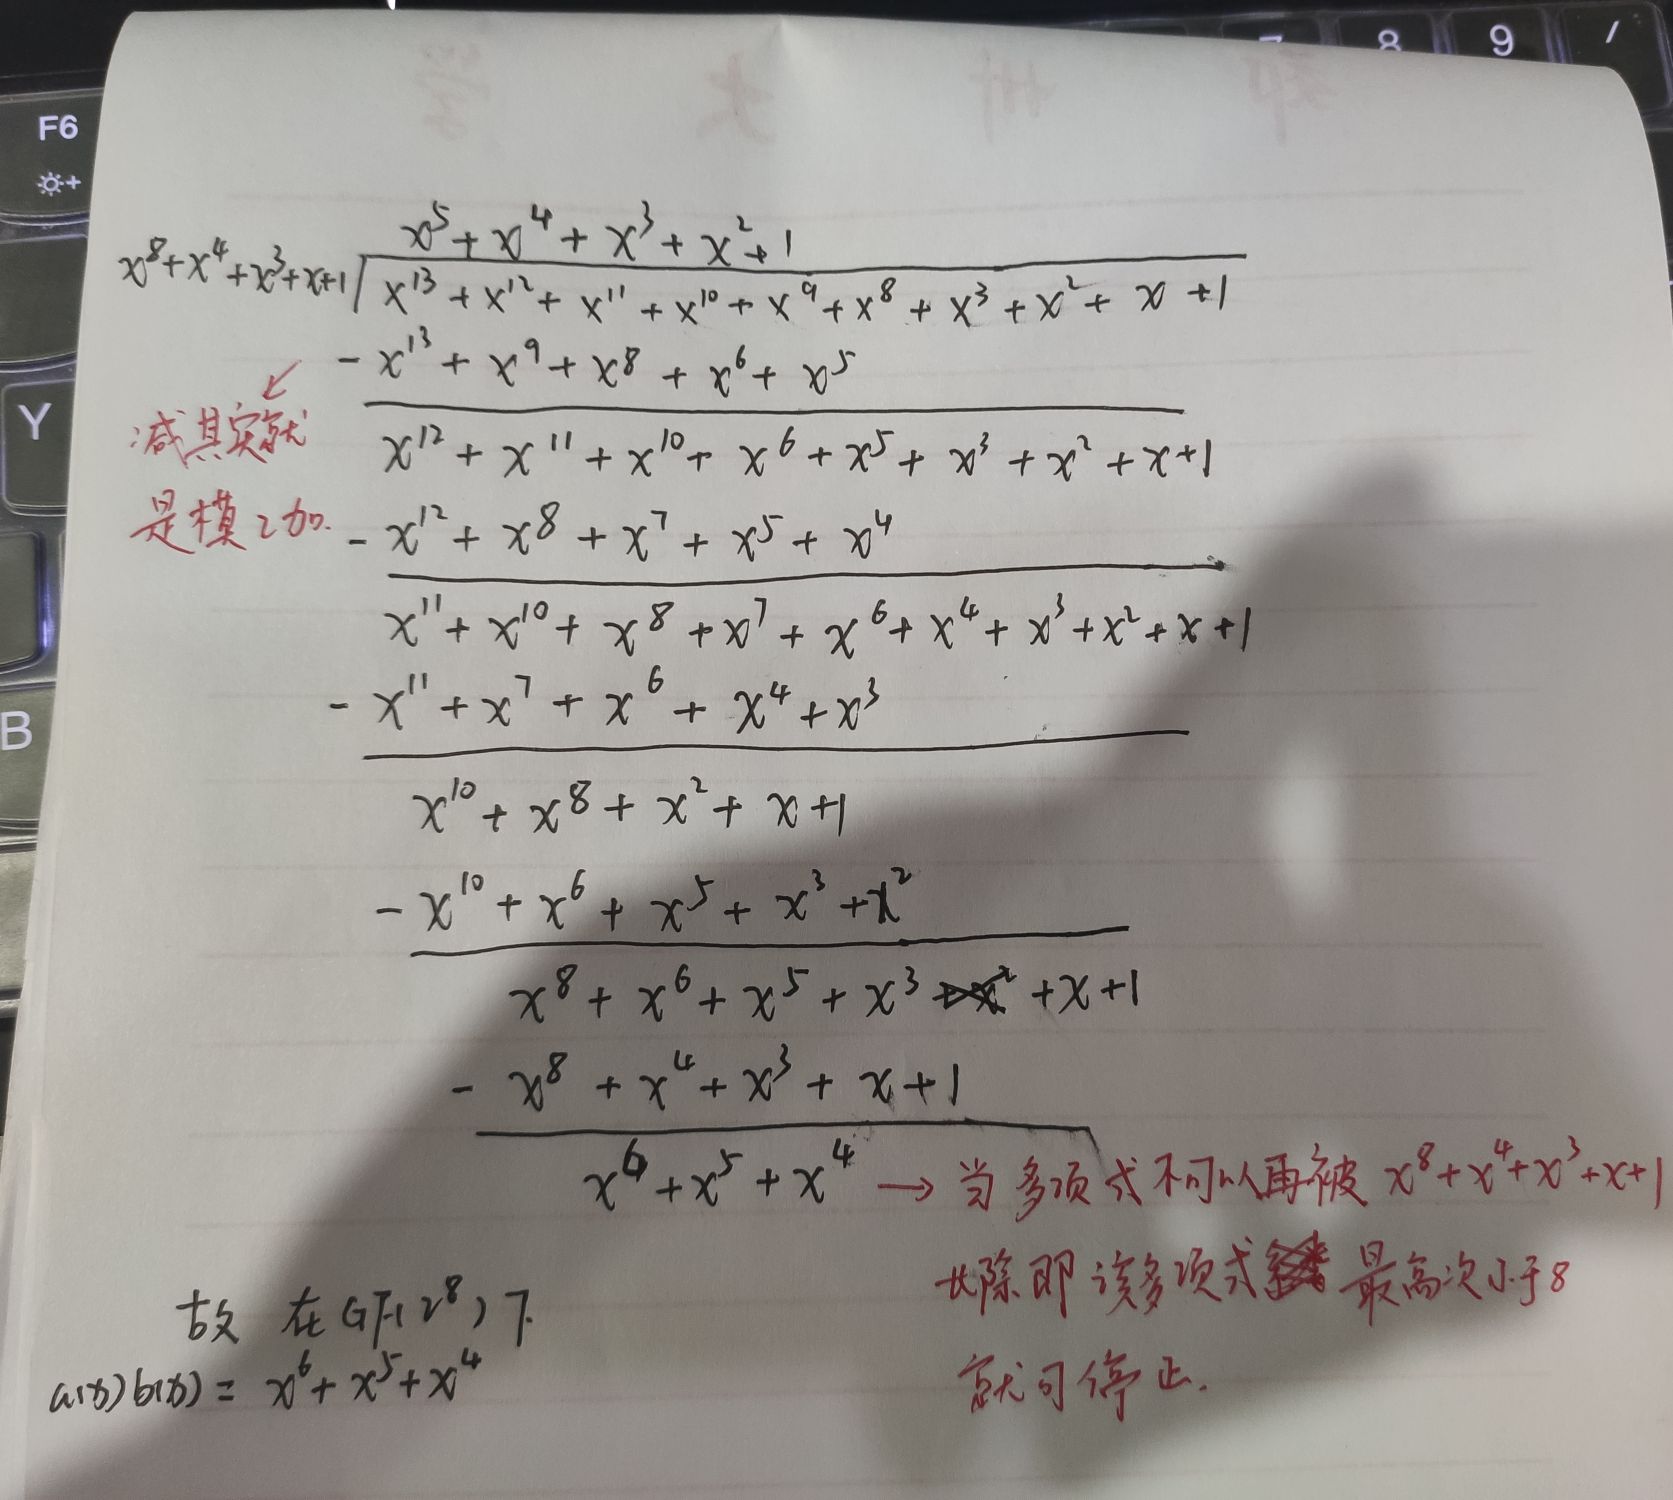 7 8 9 /
F6
Y
B
x⁵ + x⁴ + x³ + x² + 1
x⁸+x⁴+x³+x+1 / x¹³ + x¹² + x¹¹ + x¹⁰ + x⁹ + x⁸ + x³ + x² + x + 1
- x¹³ + x⁹ + x⁸ + x⁶ + x⁵
减其实就
是模2加.
x¹² + x¹¹ + x¹⁰ + x⁶ + x⁵ + x³ + x² + x + 1
- x¹² + x⁸ + x⁷ + x⁵ + x⁴
x¹¹ + x¹⁰ + x⁸ + x⁷ + x⁶ + x⁴ + x³ + x² + x + 1
- x¹¹ + x⁷ + x⁶ + x⁴ + x³
x¹⁰ + x⁸ + x² + x + 1
- x¹⁰ + x⁶ + x⁵ + x³ + x²
x⁸ + x⁶ + x⁵ + x³ + x + 1
- x⁸ + x⁴ + x³ + x + 1
x⁶ + x⁵ + x⁴ → 当多项式不可以再被 x⁸+x⁴+x³+x+1
除即该多项式最高次小于8
就可停止.
故 在GF(2⁸)下
a(x)b(x) = x⁶ + x⁵ + x⁴